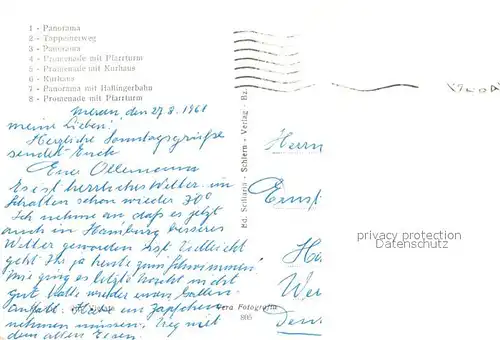 1 - Panorama
2 - Tappeinerweg
3 - Panorama
4 - Promenade mit Pfarrturm
5 - Promenade mit Kurhaus
6 - Kurhaus
7 - Panorama mit Haflingerbahn
8 - Promenade mit Pfarrturm
Meran, den 27.8.1961
Meine Lieben!
Herzliche Sonntagsgrüße
sendet Euch
Euer
Es ist herrliches Wetter im
Schatten schon wieder 30°
Ich nehme an daß es jetzt
auch in Hamburg besseres
Wetter geworden ist. Vielleicht
geht Ihr ja heute zum Schwimmen.
Mir ging es letzte Nacht nicht
gut hatte wieder einen Gallen-
anfall. Habe ein Zäpfchen
nehmen müssen.
dem alten Eisen.
Ed. Sciliaria - Schlern - Verlag - Bz.
Vera Fotografia
805
Herrn
Ernst
privacy protection
Datenschutz